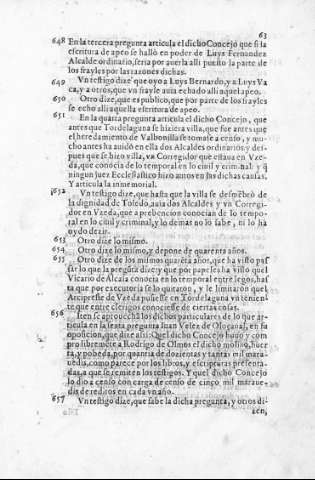 63
648 En la tercera pregunta articula el dicho Concejo que si la
escritura de apeo se halló en poder de Luys Fernandez
Alcalde ordinario, seria por auerla alli puesto la parte de
los frayles por las razones dichas.
649 Vn testigo dize que oyo a Luys Bernardo, y a Luys Va
ca, y a otros, que vn frayle auia echado alli aquel apeo.
650 Otro dize, que es publico, que por parte de los frayles
se echo alli aquella escritura de apeo.
651 En la quarta pregunta articula el dicho Concejo, que
antes que Tordelaguna se hiziera villa, que fue antes que
el heredamiento de Valbonilla se tomasse a censo, y mu-
cho antes ha auido en ella dos Alcaldes ordinarios y des-
pues que se hizo villa, vn Corregidor que estaua en Vze-
da, que conocia de lo temporal en lo ciuil y criminal y q̃
ningun Juez Ecclesiastico hizo autos en las dichas causas,
Y articula la inmemorial.
652 Vn testigo dize, que hasta que la villa se desmẽbrò de
la dignidad de Toledo, auia dos Alcaldes y vn Corregi-
dor en Vzeda, que a prebencion conocian de lo tempo-
ral en lo ciuil y criminal, y lo demas no lo sabe, ni lo hà
oydo dezir.
653 Otro dize lo mismo.
654 Otro dize lo mismo, y depone de quarenta años.
655 Otro dize de los mismos quarẽta años, que ha visto pas
sar lo que la pregũta dize: y que por papeles ha visto que el
Vicario de Alcala conocia en lo temporal entre legos, has
ta que por executoria se lo quitaron, y le limitaron que el
Arcipreste de Vzeda pusiesse en Tordelaguna vn tenien
te que entre clerigos conociesse de ciertas cosas.
656 Iten se aprouechã los dichos particulares de lo que ar-
ticula en la sexta pregunta Iuan Velez de su
oposicion, que dize assi: Quel dicho Concejo huuo y com
pro libremẽte a Rodrigo de Olmos el dicho molino, huer
ta, y pobeda, por quantia de dozientas y tantas mil mara-
uedis, como parece por los libros, y escripturas presenta-
das, a que se remiten los testigos. Y quel dicho Concejo
lo dio a censo con carga de censo de cinco mil maraue-
dis de reditos en cada vn año.
657 Vn testigo dize, que sabe la dicha pregunta, y otros di-
zen,